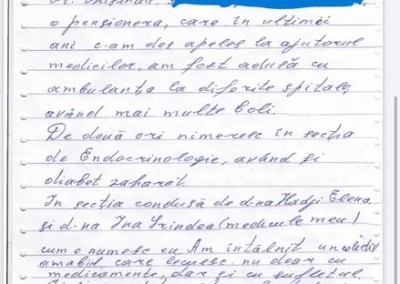 o pensioneră, care în ultimii
ani c-am des apelez la ajutorul
medicilor, am fost adusă cu
ambulanța la diferite spitale,
având mai multe boli.
De două ori nimeresc în secția
de Endocrinologie, având și
diabet zaharat.
In secția condusă de d-na Hadji Elena
și d-na Ina Grindea (medicule meu)
cum o numesc eu. Am întâlnit un colectiv
amabil, care lecuesc nu doar cu
medicamente, dar și cu sufletul.